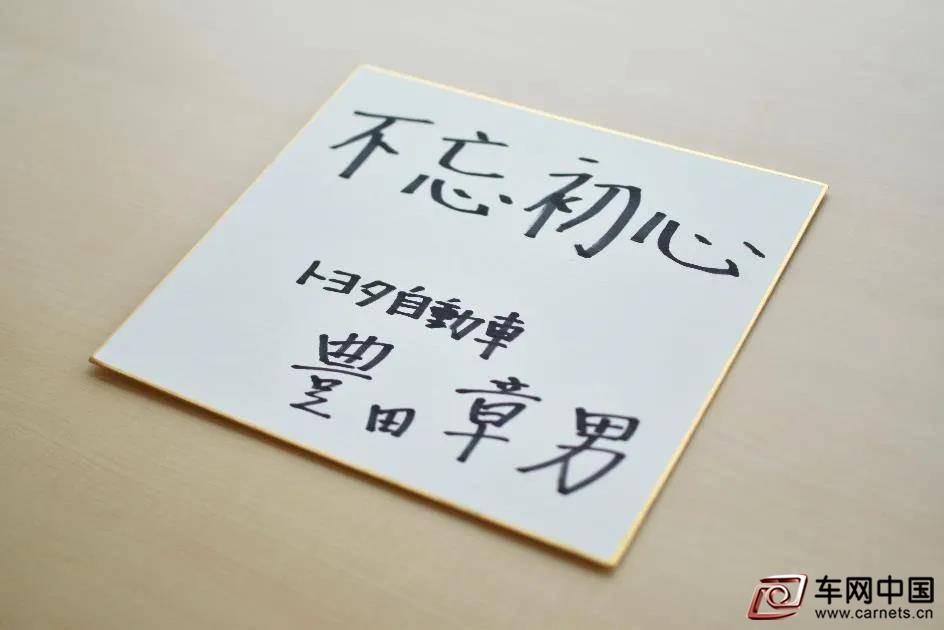 不忘初心
トヨタ自動車
豊田章男
车网中国
www.carnets.cn